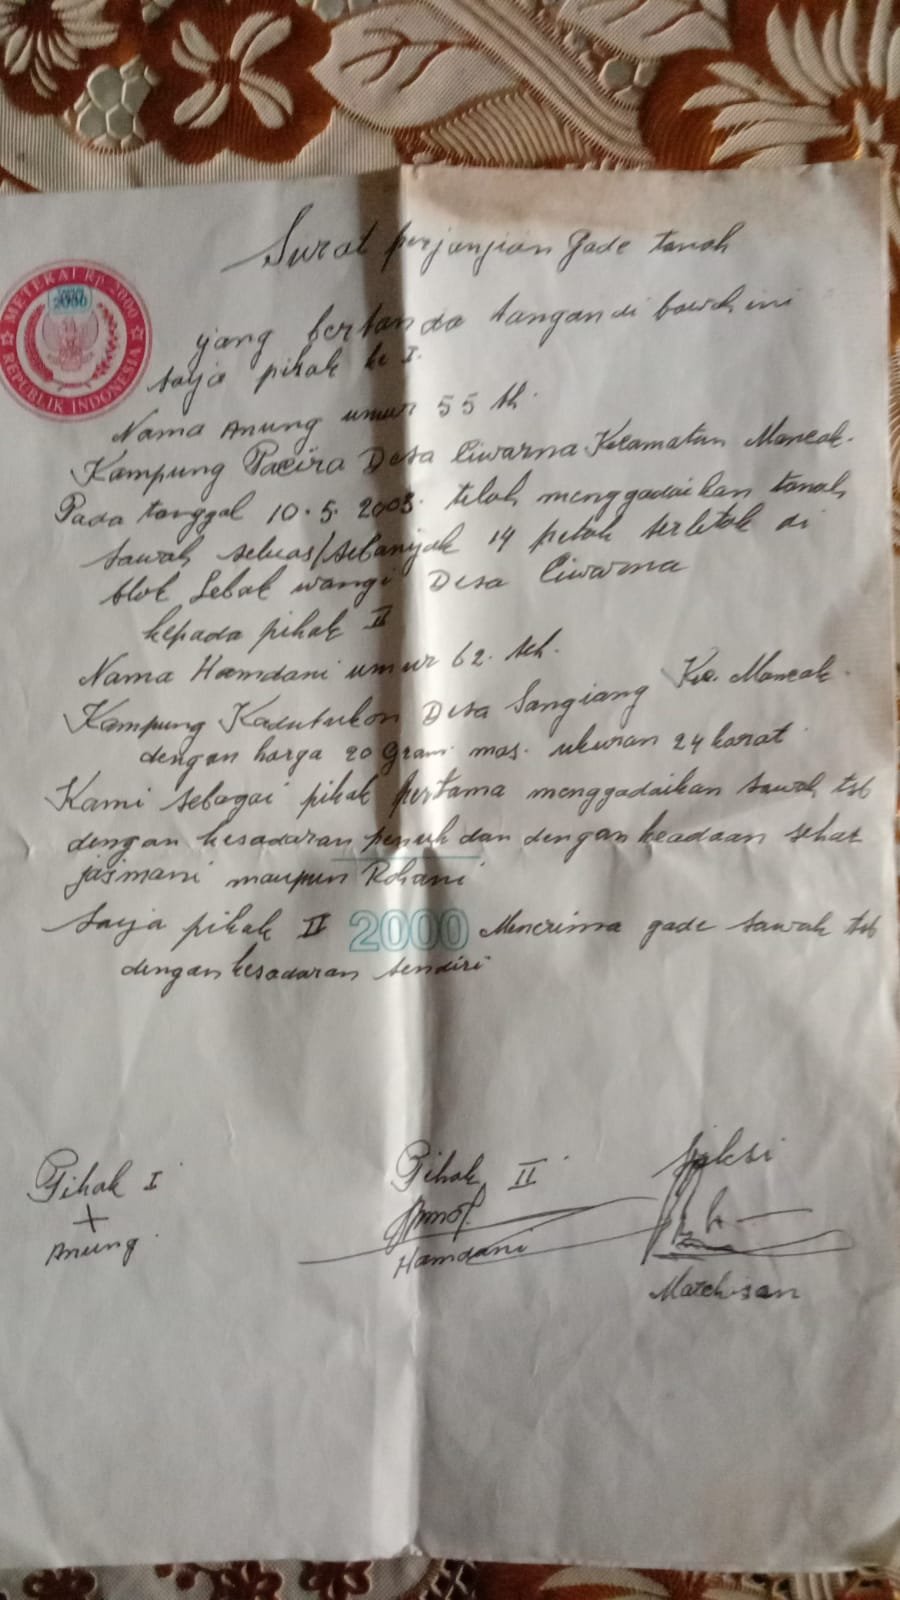 Surat perjanjian gade tanah
METERAI Rp 2000
2000
REPUBLIK INDONESIA
yang bertanda tangan di bawah ini
saya pihak ke I.
Nama Anung umur 55 th.
Kampung Pacira Desa Ciwarna Kecamatan Mancak.
Pada tanggal 10.5.2003. telah menggadaikan tanah
sawah seluas/sebanyak 14 petak terletak di
blok Lebak wangi Desa Ciwarna
kepada pihak II
Nama Hamdani umur 62. th.
Kampung Kadutukon Desa Sangiang Kec. Mancak.
dengan harga 20 Gram mas. ukuran 24 karat.
Kami sebagai pihak pertama menggadaikan sawah tsb
dengan kesadaran penuh dan dengan keadaan sehat
jasmani maupun Rohani
Saya pihak II 2000 Menerima gade sawah tsb
dengan kesadaran sendiri
Pihak I Pihak II Saksi
Anung. Hamdani Marchisan